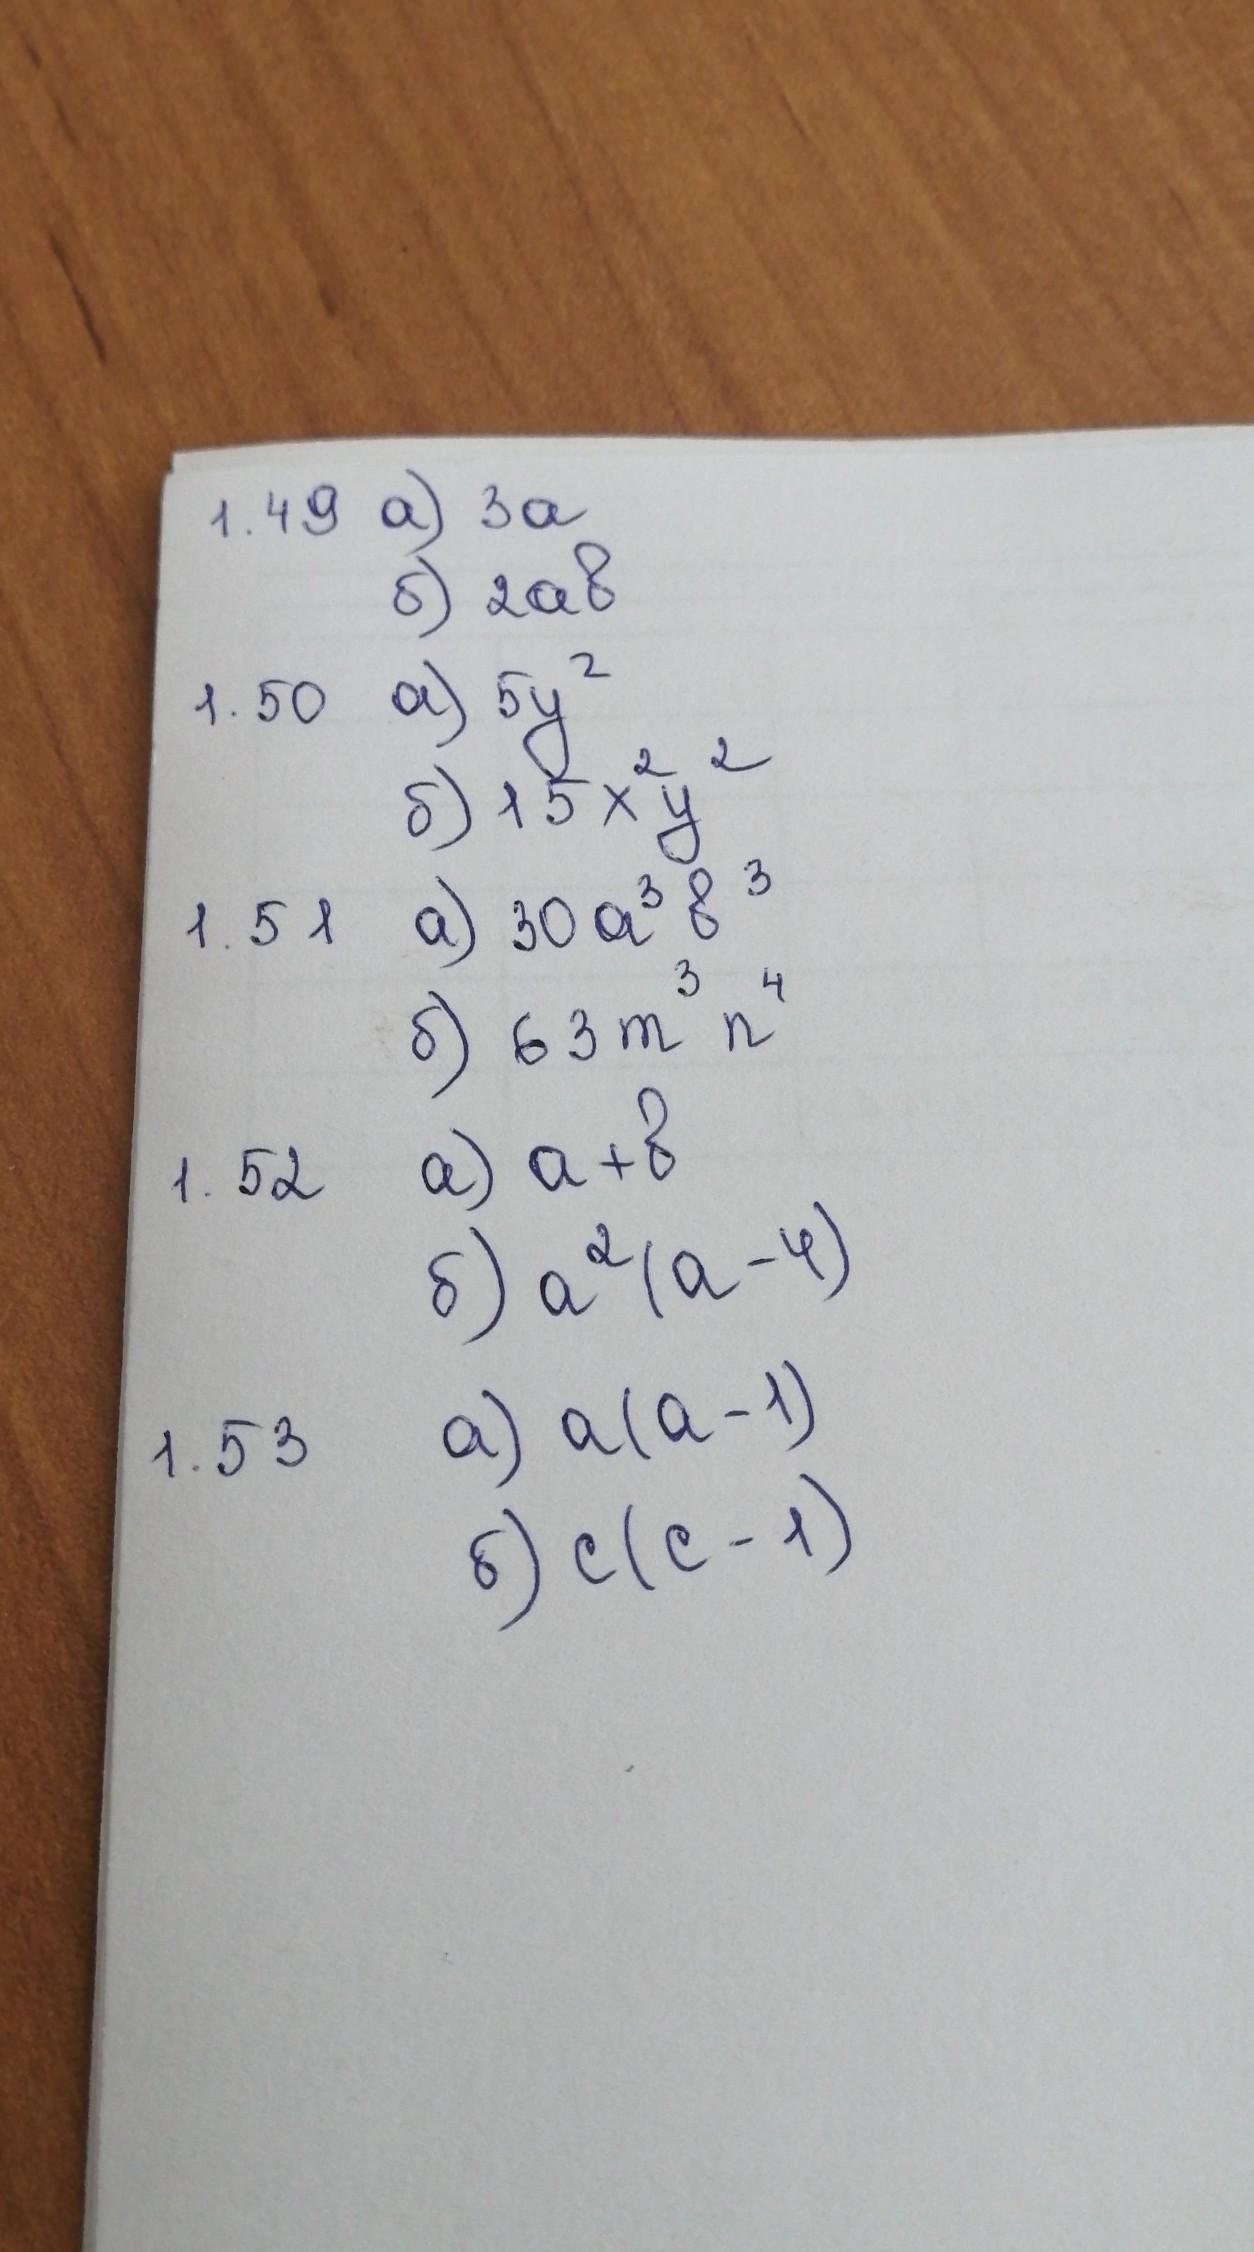 1.49 а) 3a
б) 2ab
1.50 а) 5y²
б) 15x²y²
1.51 а) 30a³b³
б) 63m³n⁴
1.52 а) a+b
б) a²(a-4)
1.53 а) a(a-1)
б) c(c-1)